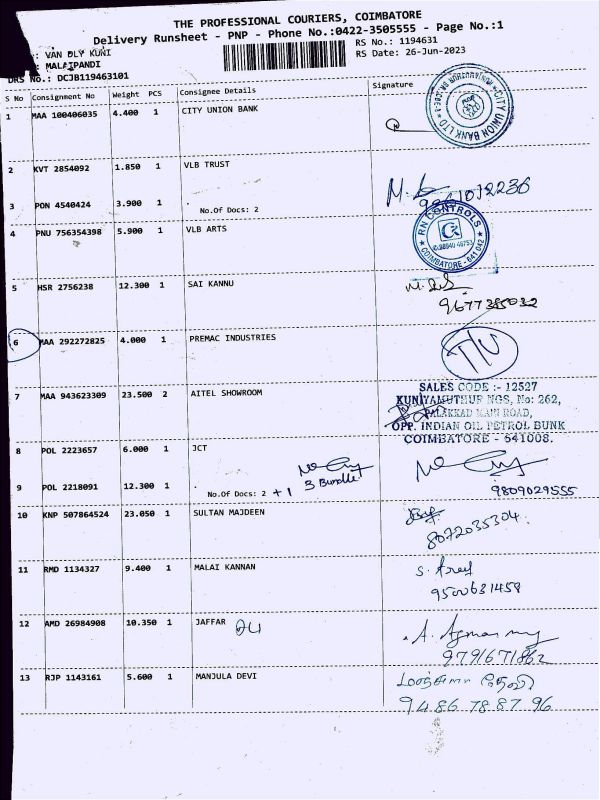 THE PROFESSIONAL COURIERS, COIMBATORE
Delivery Runsheet - PNP - Phone No.:0422-3505555 - Page No.:1
: VAN DLY KUNI RS No.: 1194631
: MALAIPANDI RS Date: 26-Jun-2023
DRS No.: DCJB119463101
S No Consignment No Weight PCS Consignee Details Signature
1 MAA 100406035 4.400 1 CITY UNION BANK
CITY UNION BANK LTD
2 KVT 2854092 1.850 1 VLB TRUST
3 PON 4540424 3.900 1 .
No.Of Docs: 2
4 PNU 756354398 5.900 1 VLB ARTS
RN CONTROLS
COIMBATORE - 641 042
5 HSR 2756238 12.300 1 SAI KANNU
9677385032
6 MAA 292272825 4.000 1 PREMAC INDUSTRIES
7 MAA 943623309 23.500 2 AITEL SHOWROOM
SALES CODE :- 12527
KUNIYAMUTHUR NGS, No: 262,
PALAKKAD MAIN ROAD,
OPP. INDIAN OIL PETROL BUNK
COIMBATORE - 641008.
8 POL 2223657 6.000 1 JCT
3 Bundle
9 POL 2218091 12.300 1 .
No.Of Docs: 2 +1 9809029555
10 KNP 507864524 23.050 1 SULTAN MAJDEEN
8072035304
11 RMD 1134327 9.400 1 MALAI KANNAN
9500631459
12 AMD 26984908 10.350 1 JAFFAR
9791671862
13 RJP 1143161 5.600 1 MANJULA DEVI
மஞ்சுளா தேவி
94 86 78 87 96